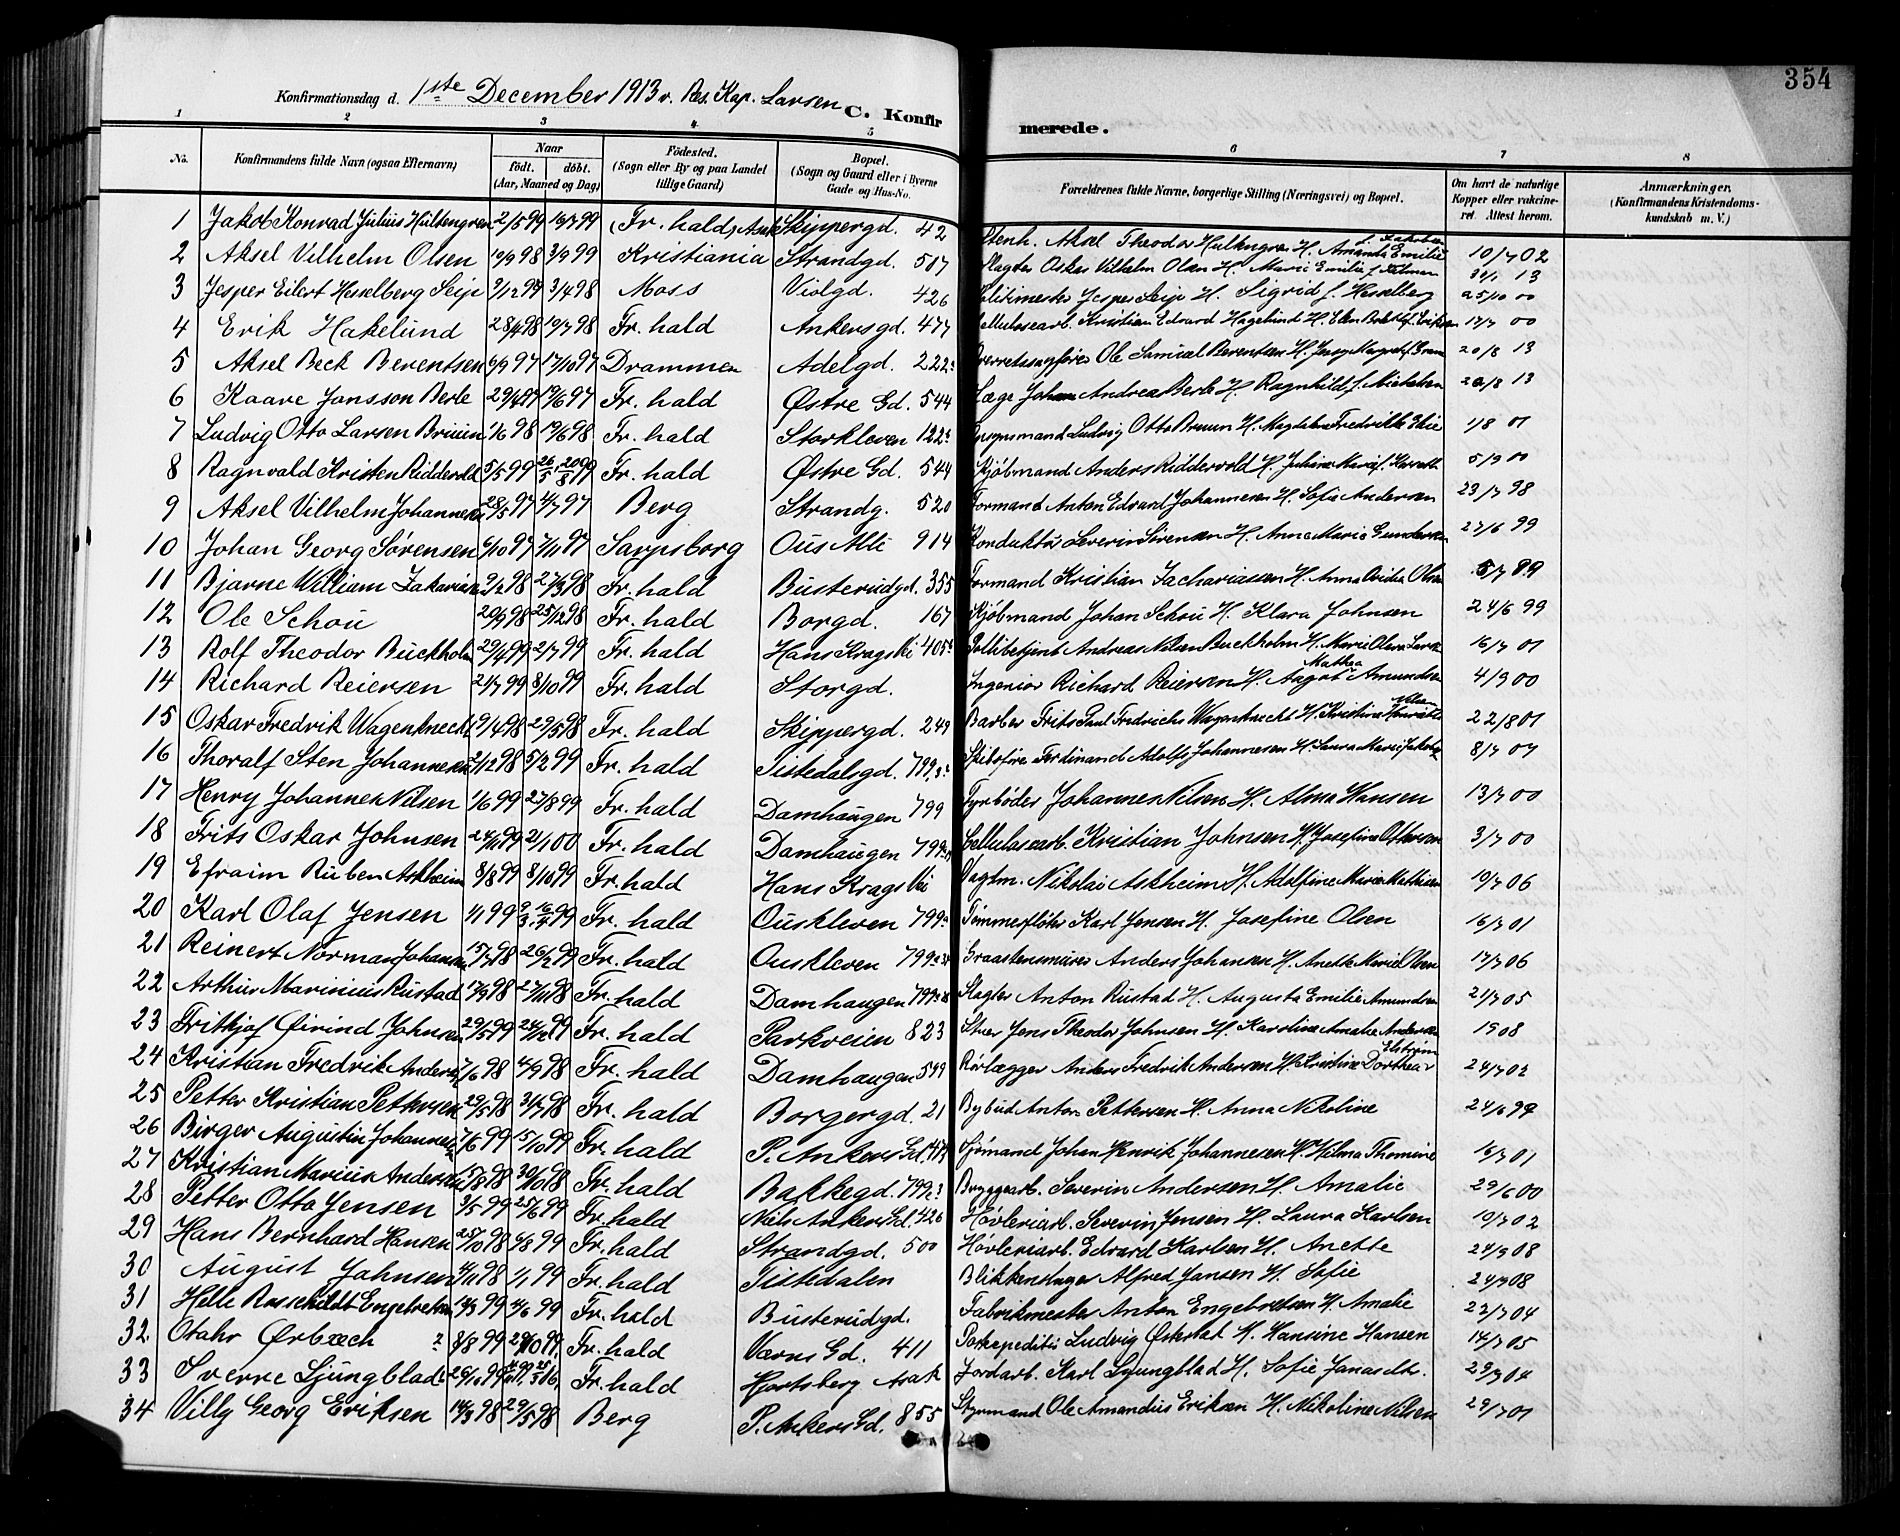 354
Konfirmationsdag d. 1ste December 1913 v. Res. Kap. Larsen
C. Konfirmerede.
1 2 3 4 5 6 7 8
No. Konfirmandens fulde Navn (ogsaa Efternavn) Naar födt. döbt. (Aar, Maaned og Dag) Födested. (Sogn eller By og paa Landet tillige Gaard) Bopæl. (Sogn og Gaard eller i Byerne Gade og Hus-No. Forældrenes fulde Navne, borgerlige Stilling (Næringsvei) og Bopæl. Om havt de naturlige Kopper eller vaccineret. Attest herom. Anmærkninger. (Konfirmandens Kristendomskundskab m. V.)
1 Jakob Konrad Julius Hultengren 2/5 99 16/7 99 Fr. hald, Asak Skippergd. 42 Aksel Theodor Hultengren H. Amanda Emilie f. Jakobsen 10/7 02
2 Aksel Vilhelm Olsen 19/9 98 3/9 99 Kristiania Strandgd. 517 Slagter Oskar Vilhelm Olsen H. Marie Emilie f. 13
3 Jesper Eilert Hesselberg Seip 9/12 97 3/4 98 Moss Violgd. 426 Politimester Jesper Seip H. Sigrid f. Hesselberg 25/10 00
4 Erik Hakelund 28/4 98 19/7 98 Fr. hald Ankersgd. 477 Cellulosearb. Kristian Edvard Hagelund H. Elen f. Eriksen 17/7 00
5 Aksel Beck Berentsen 6/9 97 17/10 97 Drammen Adelgd. 222 Overretssagfører Ole Samuel Berentsen H. Jenny Margrethe 20/8 13
6 Kaare Jonsson Berle 29/4 97 19/6 97 Fr. hald Østre Gd. 544 Læge Johan Andrea Berle H. Ragnhild f. Nielsen 20/8 13
7 Ludvig Otto Larsen Bruun 1/6 98 19/6 98 Fr. hald Storkleven 122 Ludvig Otto Bruun H. Magdalena Fredrikke Elise 1/8 01
8 Ragnvald Kristen Riddervold 5/5 99 26/5 20/8 99 Fr. hald Østre Gd. 544 Kjøbmand Anders Riddervold H. Juliane Marie f. 5/9 00
9 Aksel Vilhelm Johannesen 28/5 97 4/7 97 Berg Strandg. 520 Formand Anton Edvard Johannesen H. Sofie Andersen 23/7 98
10 Johan Georg Sørensen 6/10 97 7/11 97 Sarpsborg Ous Alle 914 Konduktør Severin Sørensen H. Anna Marie Gundersen 27/6 99
11 Bjarne William Zakariasen 9/2 98 27/3 98 Fr. hald Busterudgd. 355 Formand Kristian Zachariassen H. Anna Ovidia Olsen 5/7 89
12 Ole Schou 20/9 98 25/12 98 Fr. hald Borgd. 167 Kjøbmand Johan Schou H. Klara Johnsen 24/6 99
13 Rolf Theodor Buckholm 29/4 99 2/7 99 Fr. hald Hans Krags Vei 405 Politibetjent Andreas Nilsen Buckholm H. Marie Olava Larsen 16/7 01
14 Richard Reiersen 21/7 99 8/10 99 Fr. hald Storgd. Ingeniør Richard Reiersen H. Aagot Mathea Amundsen 4/9 00
15 Oskar Fredrik Wagenknecht 19/4 98 29/5 98 Fr. hald Skippergd. 249 Barber Frits Paul Fredrichs Wagenknecht H. Kristine Henriette 22/8 01
16 Thoralf Sten Johannesen 2/12 98 5/2 99 Fr. hald Tistedalsgd. 799 Skibsfører Ferdinand Adolf Johannesen H. Laura Marie 8/7 07
17 Henry Johannes Nilsen 1/6 99 27/8 99 Fr. hald Damhaugen 799 Fyrbøder Johannes Nilsen H. Alma Hansen 13/7 00
18 Frits Oskar Johnsen 24/11 99 21/1 00 Fr. hald Damhaugen 799 Cellulosearb. Kristian Johnsen H. Josefine Ottersen 3/7 00
19 Efraim Ruben Askheim 8/8 99 8/10 99 Fr. hald Hans Krags Vei Vagtm. Nikolai Askheim H. Adolfine Marie Mathisen 19/7 06
20 Karl Olaf Jensen 1/1 99 9/3 16/4 99 Fr. hald Ouskleven 799 Tømmerfløter Karl Jensen H. Josefine Olsen 16/7 01
21 Reinert Norman Johansen 15/7 98 26/2 99 Fr. hald Ouskleven 799 Graastensmurer Anders Johansen H. Anette Marie Olsen 17/7 06
22 Arthur Marinius Rustad 17/9 98 27/11 98 Fr. hald Damhaugen 799 Slagter Anton Rustad H. Augusta Emilie Amundsen 21/7 05
23 Fritkjof Øivind Johnsen 29/5 99 24/12 99 Fr. hald Parkveien 823 Stuer Jens Theodor Johnsen H. Karoline Amalie Andersen 1908
24 Kristian Fredrik Andersen 7/6 98 4/9 98 Fr. hald Damhaugen 599 Rørlægger Anders Fredrik Andersen H. Kristine Dorthea Elstrøm 24/7 02
25 Petter Kristian Pettersen 29/5 98 31/7 98 Fr. hald Borgergd. 21 Bybud Anton Pettersen H. Anna Nikoline 24/6 99
26 Birger Augustin Johannesen 7/6 99 15/10 99 Fr. hald P. Ankers Gd. 474 Sjømand Johan Henrik Johannesen H. Hilma Thomine 16/7 01
27 Kristian Marius Andersen 15/8 98 30/10 98 Fr. hald Bakkegd. 799 Bryggearb. Severin Andersen H. Amalie 29/6 00
28 Petter Otto Jensen 3/5 99 25/6 99 Fr. hald Niels Ankers Gd. 426 Høvleriarb. Severin Jensen H. Laura Karlsen 19/7 02
29 Hans Bernhard Hansen 25/10 98 6/8 99 Fr. hald Strandgd. 500 Høvleriarb. Edvard Karlsen H. Anette 24/9 08
30 August Johnsen 4/11 98 1/1 99 Fr. hald Tistedalen Blikkenslager Alfred Jansen H. Sofie 24/9 08
31 Helle Roschildt Engebretsen 14/3 99 4/6 99 Fr. hald Busterudgd. Fabrikmester Anton Engebretsen H. Amalie 22/7 04
32 Otahr Ørbæch 8/8 99 29/10 99 Fr. hald Værns Gd. 411 Postexpeditør Ludvig Østerbæk H. Hansine Hansen 14/7 05
33 Sverre Ljungblad Fr. hald Hjortsberg Asak Jordarb. Karl Ljungblad H. Sofie Janasdtr. 29/9 04
34 Villy Georg Eriksen 14/3 98 29/5 98 Berg P. Ankers Gd. 855 Styrmand Ole Amandus Eriksen H. Nikoline Nilsen 29/7 01